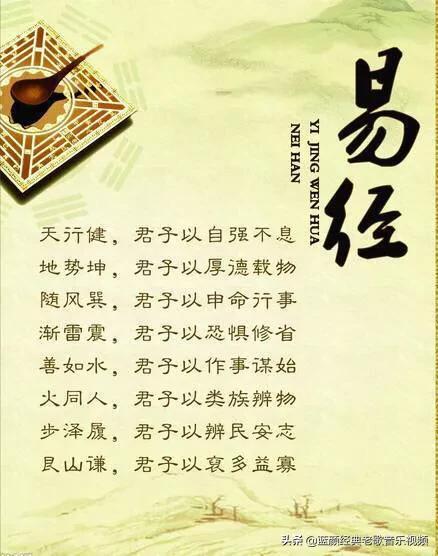 易经
YI JING WEN HUA
NEI HAN
天行健，君子以自强不息
地势坤，君子以厚德载物
随风巽，君子以申命行事
渐雷震，君子以恐惧修省
善如水，君子以作事谋始
火同人，君子以类族辨物
步泽履，君子以辨民安志
艮山谦，君子以裒多益寡
头条 @蓝颜经典老歌音乐视频